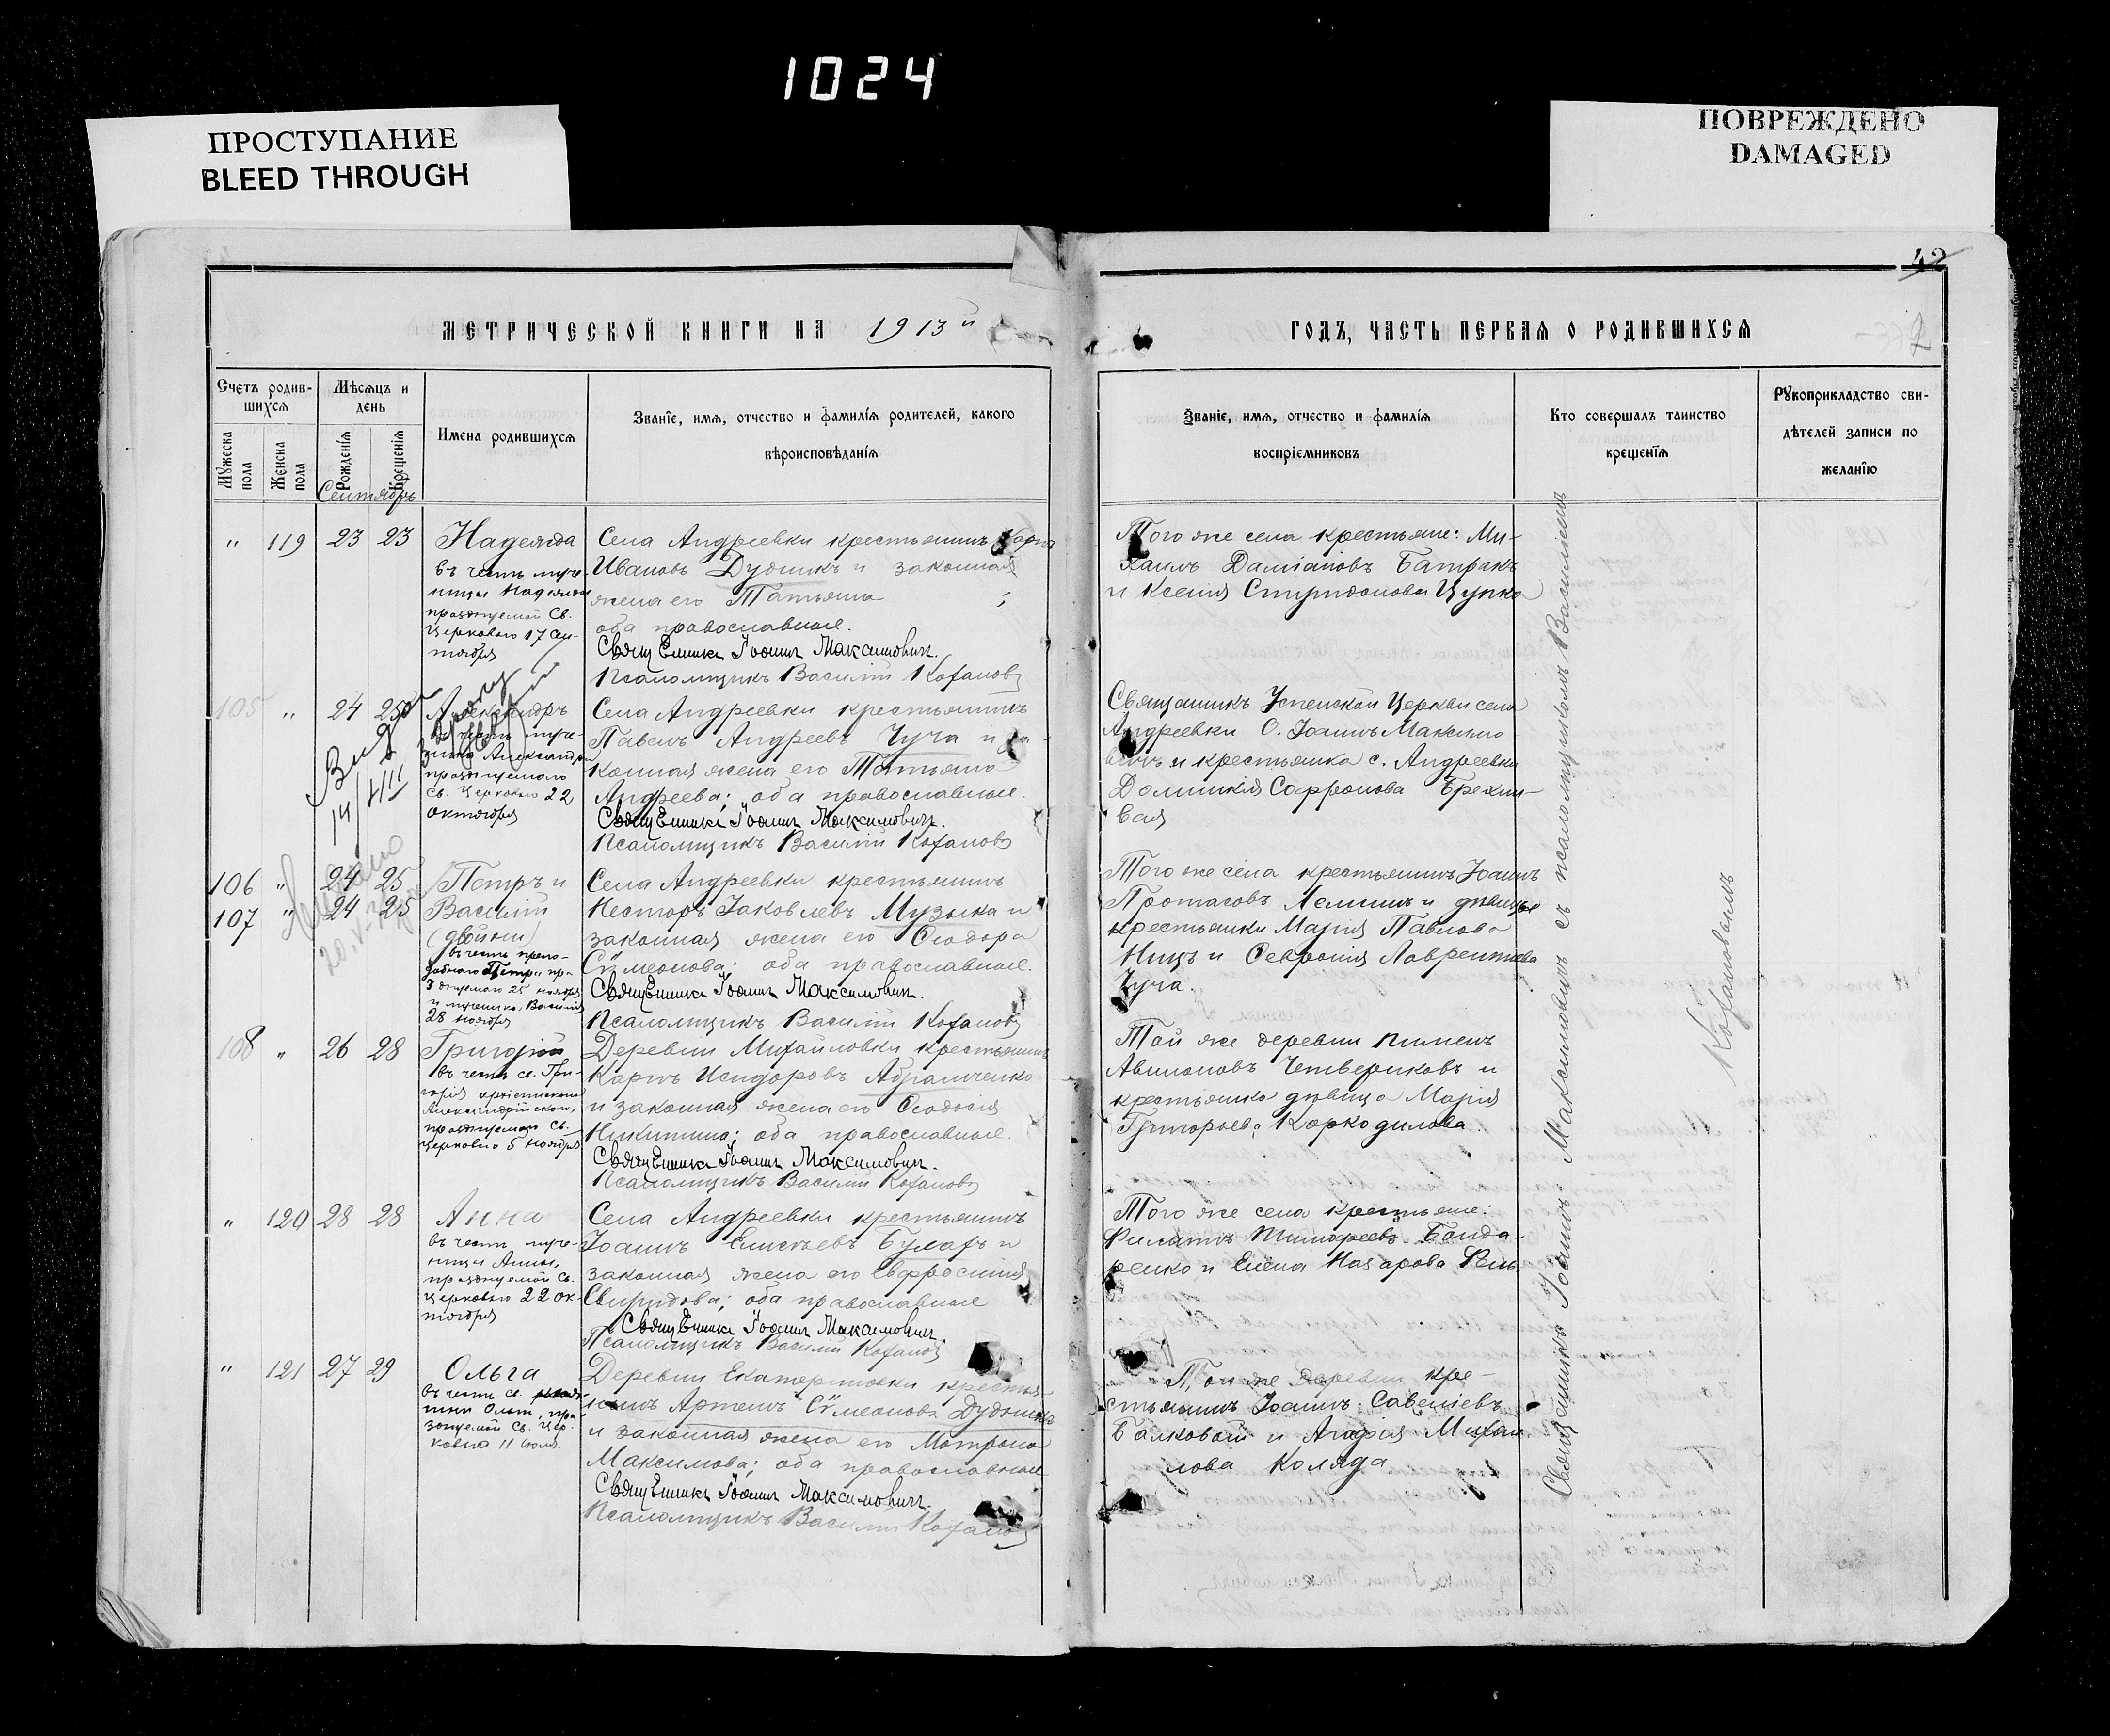 1024
ПРОСТУПАНИЕ
BLEED THROUGH
ПОВРЕЖДЕНО
DAMAGED
42
МЕТРИЧЕСКОЙ КНИГИ НА 1913й
ГОДЪ, ЧАСТЬ ПЕРВАЯ О РОДИВШИХСЯ
2
Счетъ родив-
шихся
Мѣсяцъ и
день
Мужеска
пола
Женска
пола
Рожденія
Крещенія
Имена родившихся
Званіе, имя, отчество и фамилія родителей, какого
вѣроисповѣданія
Званіе, имя, отчество и фамилія
воспріемниковъ
Кто совершалъ таинство
крещенія
Рукоприкладство сви-
дѣтелей записи по
желанію
Сентябрь
" 119 23 23
Надежда
въ честь муче-
ницы Надежды
празднуемой Св.
Церковью 17 Сен-
тября
Села Андреевки крестьянинъ
Ивановъ Дудникъ и законная
жена его Татьяна
оба православные.
Священникъ Іоаннъ Максимовичъ.
Псаломщикъ Василій Кофановъ
Того же села крестьяне: Ми-
хаилъ Даміановъ Батракъ
и Ксенія Спиридонова Цупка
105 " 24 25
Александръ
въ честь муче-
ника Александра
празднуемаго
Св. Церковью 22
октября
Села Андреевки крестьянинъ
Павелъ Андреевъ Чуча и за-
конная жена его Татьяна
Андреева; оба православные.
Священникъ Іоаннъ Максимовичъ.
Псаломщикъ Василій Кофановъ
Священникъ Успенской Церкви села
Андреевки О. Іоаннъ Максимо
вичъ и крестьянка с. Андреевки
Домникія Софронова Брехли-
вая
106 " 24 25
107 " 24 25
Петръ и
Василій
(двойни)
въ честь препо-
добнаго Петра, пра-
зднуемаго 25 ноября
и мученика Василія
28 ноября
Села Андреевки крестьянинъ
Несторъ Іаковлевъ Музыка и
законная жена его Ѳеодора
Сѵмеонова; оба православные.
Священникъ Іоаннъ Максимовичъ.
Псаломщикъ Василій Кофановъ
Того же села крестьянинъ Іоаннъ
Протасовъ и дѣвицы
крестьянки Марія Павлова
и Февронія Лаврентіева
Чуча.
108 " 26 28
Григорій
въ честь св. Гри-
горія архіепископа
Александрійскаго,
празднуемаго Св.
Церковью 5 ноября
Деревни Михайловки крестьянинъ
Карпъ Исидоровъ Абрамченко
и законная жена его Ѳеодосія
Никитина; оба православные.
Священникъ Іоаннъ Максимовичъ.
Псаломщикъ Василій Кофановъ
Той же деревни Пименъ
Четвериковъ и
крестьянка дѣвица Марія
Григорьева Коркодилова.
" 120 28 28
Анна
въ честь муче-
ницы Анны,
празднуемой Св.
Церковью 22 ок-
тября
Села Андреевки крестьянинъ
Іоаннъ Елисеевъ Бухаръ и
законная жена его Евфросинія
Свиридова; оба православные
Священникъ Іоаннъ Максимовичъ.
Псаломщикъ Василій Кофановъ
Того же села крестьяне:
Филиппъ Тимофеевъ Бонда-
ренко и Елена Назарова
" 121 27 29
Ольга
въ честь св.
Ольги, пра-
зднуемой Св. Цер-
ковью 11 іюля.
Деревни Екатериновки крестья-
нинъ Артемъ Сѵмеоновъ Дудникъ
и законная жена его Матрона
Максимова; оба православные
Священникъ Іоаннъ Максимовичъ.
Псаломщикъ Василій Кофановъ
Той же деревни кре-
стьянинъ Іоаннъ Савеліевъ
Балковой и Агафія Михаи-
лова Коляда
Священникъ Іоаннъ Максимовичъ съ псаломщикомъ Василіемъ
Кофановымъ